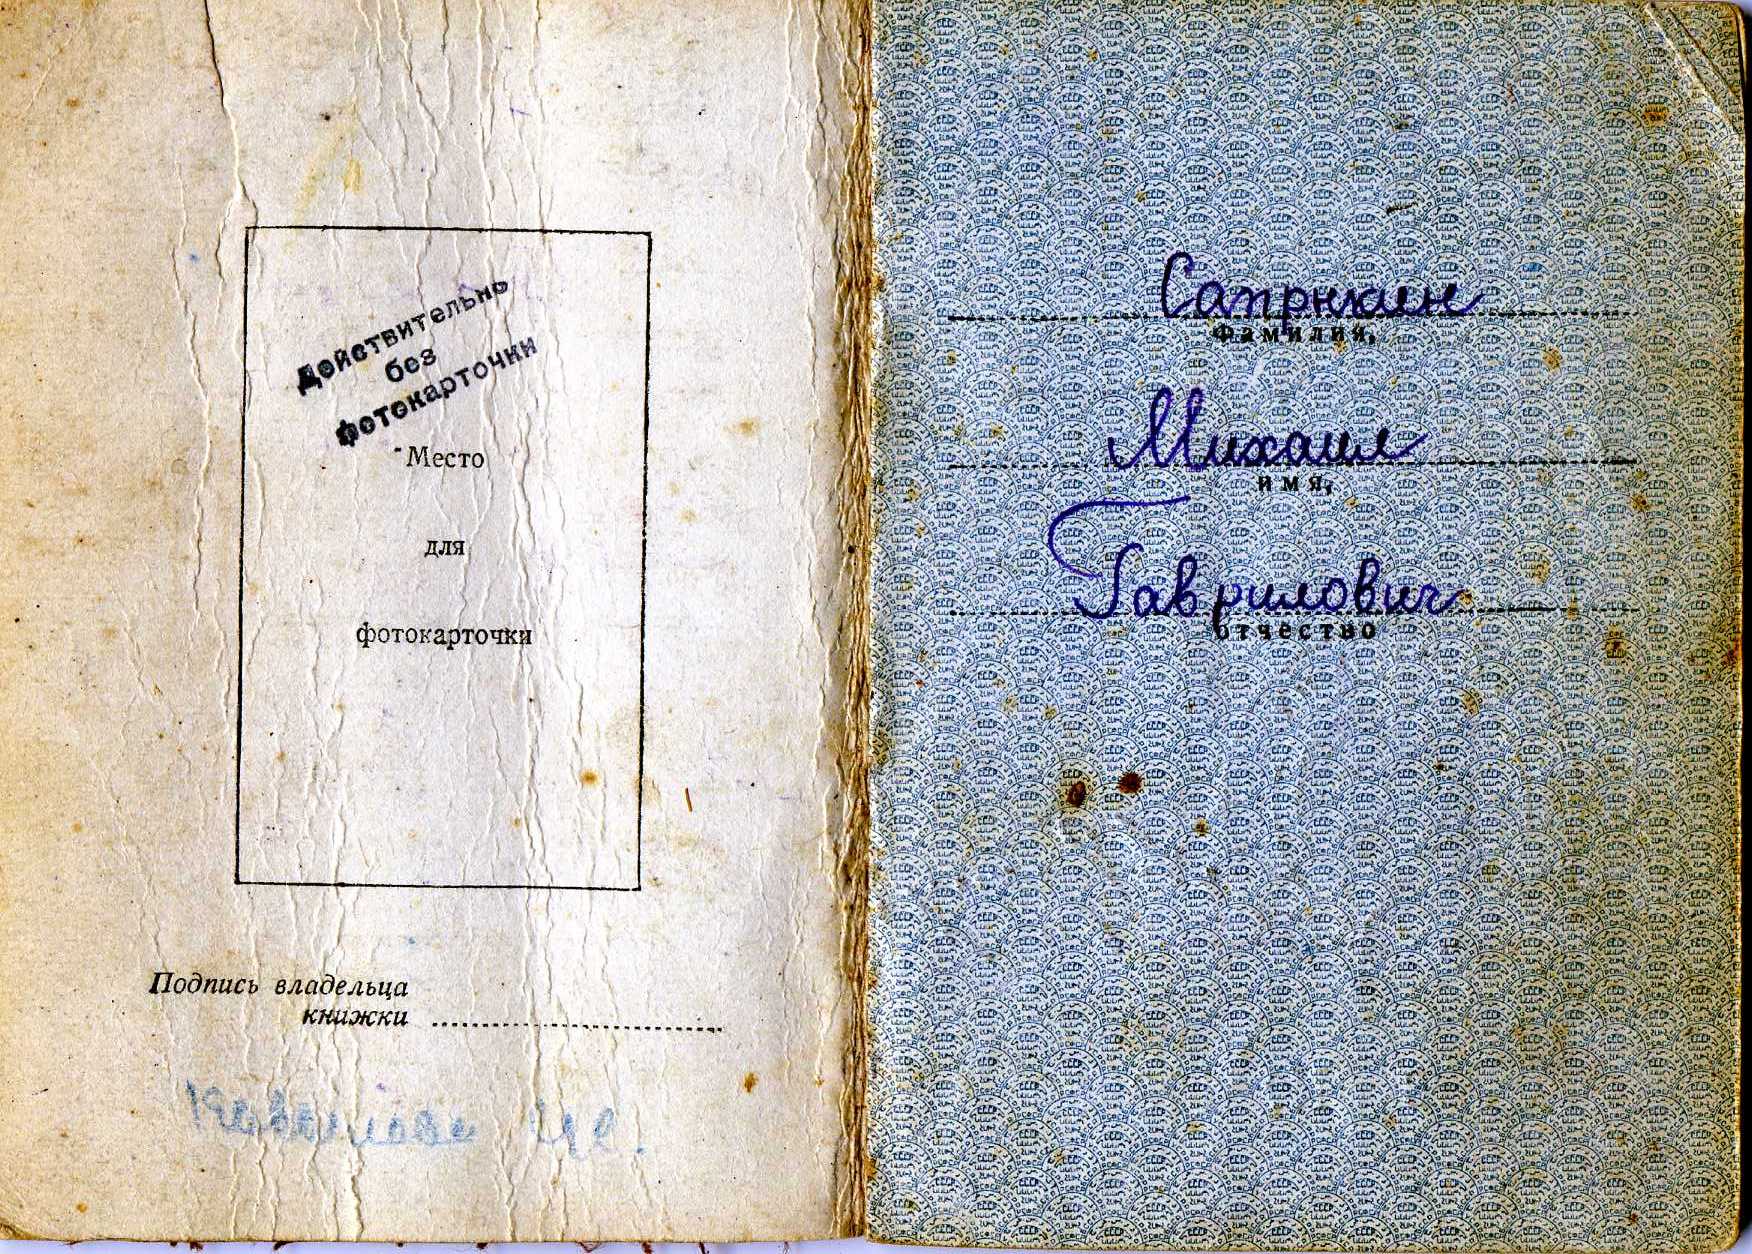 Действительно
без
фотокарточки
Место
для
фотокарточки
Подпись владельца
книжки
Сапрыкин
фамилия,
Михаил
имя,
Гаврилович
отчество